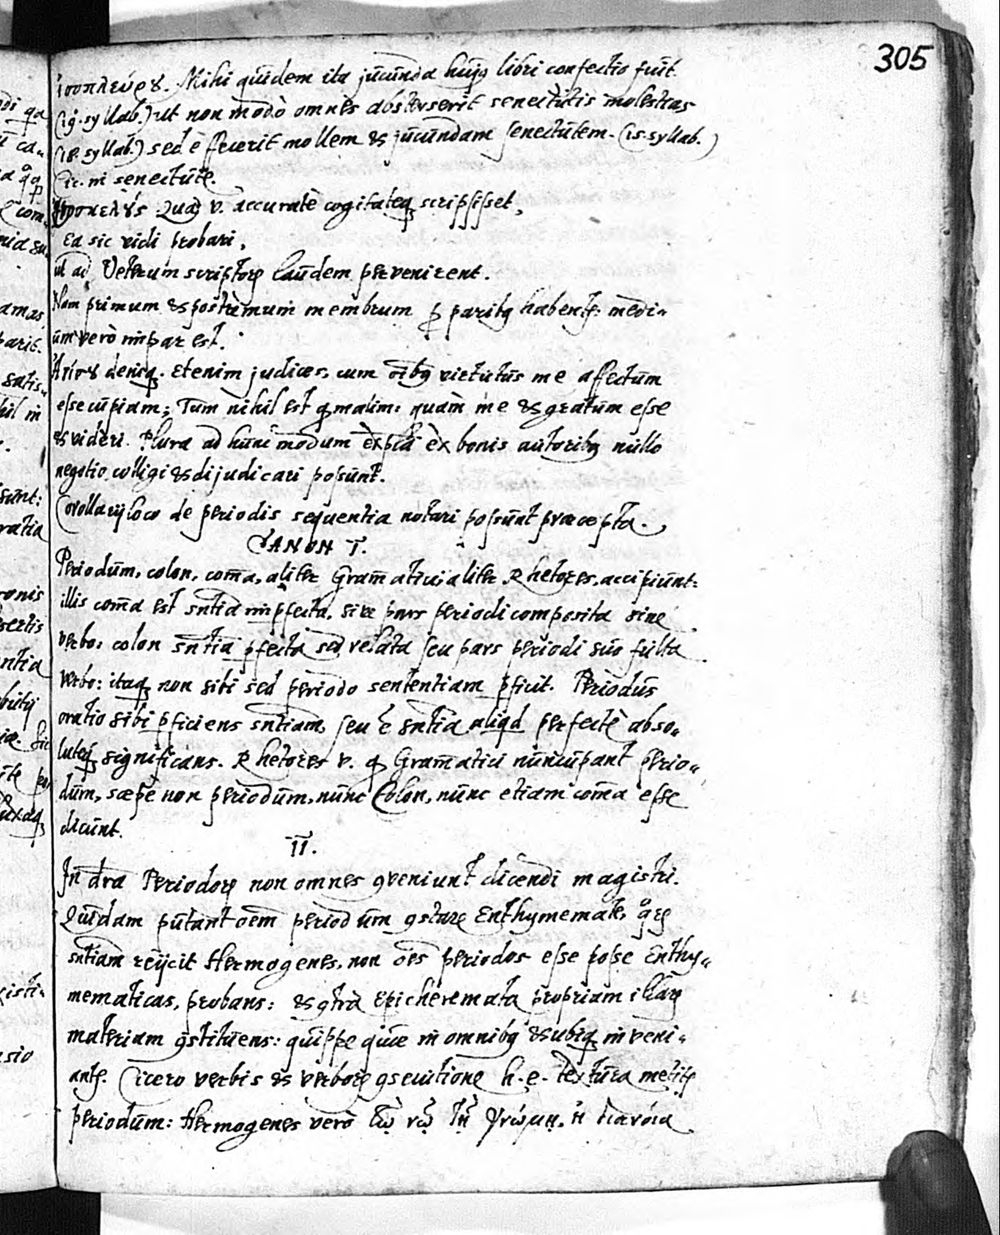 305
ἰσοπλεύρȣ. Mihi quidem ita jucunda hujꝗ libri confectio fuit
(19. syllab.) ut non modò omnes absterserit senectutis molestias
(18. syllab.) sed effecerit mollem & jucundam senectutem. (15. syllab.)
Cic. in senectute.
Ἰσοσκελȣ̃s Quas v. accuratè cogitatēꝗ scripsisset,
Ea sic vidi probari,
ut ad Veterum scriptoꝝ laudem pervenirent.
Nam primum & postremum membrum ꝑ paribꝗ habentꝭ: medi„
um verò impar est.
Arisȣ deniqꝫ. Etenim judices, cum oībꝗ virtutūs me affectum
esse cupiam; Tum nihil est ꝙ malim: quam me & gratum esse
& videri. Plura ad hunc modum exp̄la ex bonis autoribꝗ nullo
negotio colligi & dijudicari possunt.
Corollarij loco de periodis sequentia notari possunt præcepta.
CANON I.
Periodum, colon, com̄a, aliter Gram̄atici aliter Rhetores accipiunt:
illis com̄a est sn̄tia imꝑfecta, sive pars periodi composita sine
verbo: colon sn̄tia ꝑfecta sed relata seu pars periodi suo fulta
verbo: itaqꝫ non sibi sed periodo sententiam ꝑficit. Periodus
oratio sibi ꝑficiens sn̄tiam, seu ē sn̄tia aliqd perfectè abso„
lutēqꝫ significans. Rhetores v. ꝙ Gram̄atici nuncupant perio„
dum, sæpe non periodum, nunc Colon, nunc etiam com̄a esse
dicunt.
II.
In dr̄a Periodoꝝ non omnes ꝯveniunt dicendi magistri.
Quidam putant oēm periodum ꝯstare Enthymemate, quoꝝ
sn̄tiam reijcit Hermogenes, non oēs periodos esse posse Enthy„
mematicas, probans: & ꝯtrà Epicheremata propriam illaꝝ
materiam ꝯstituens: quippe quæ in omnibꝗ & ubiqꝫ inveni„
antꝭ. Cicero verbis & verboꝝ ꝯsecutione h. e. textura metitꝭ
periodum: Hermogenes verò τῷ νῷ τῇ γνώμῃ, ἢ διανοίᾳ